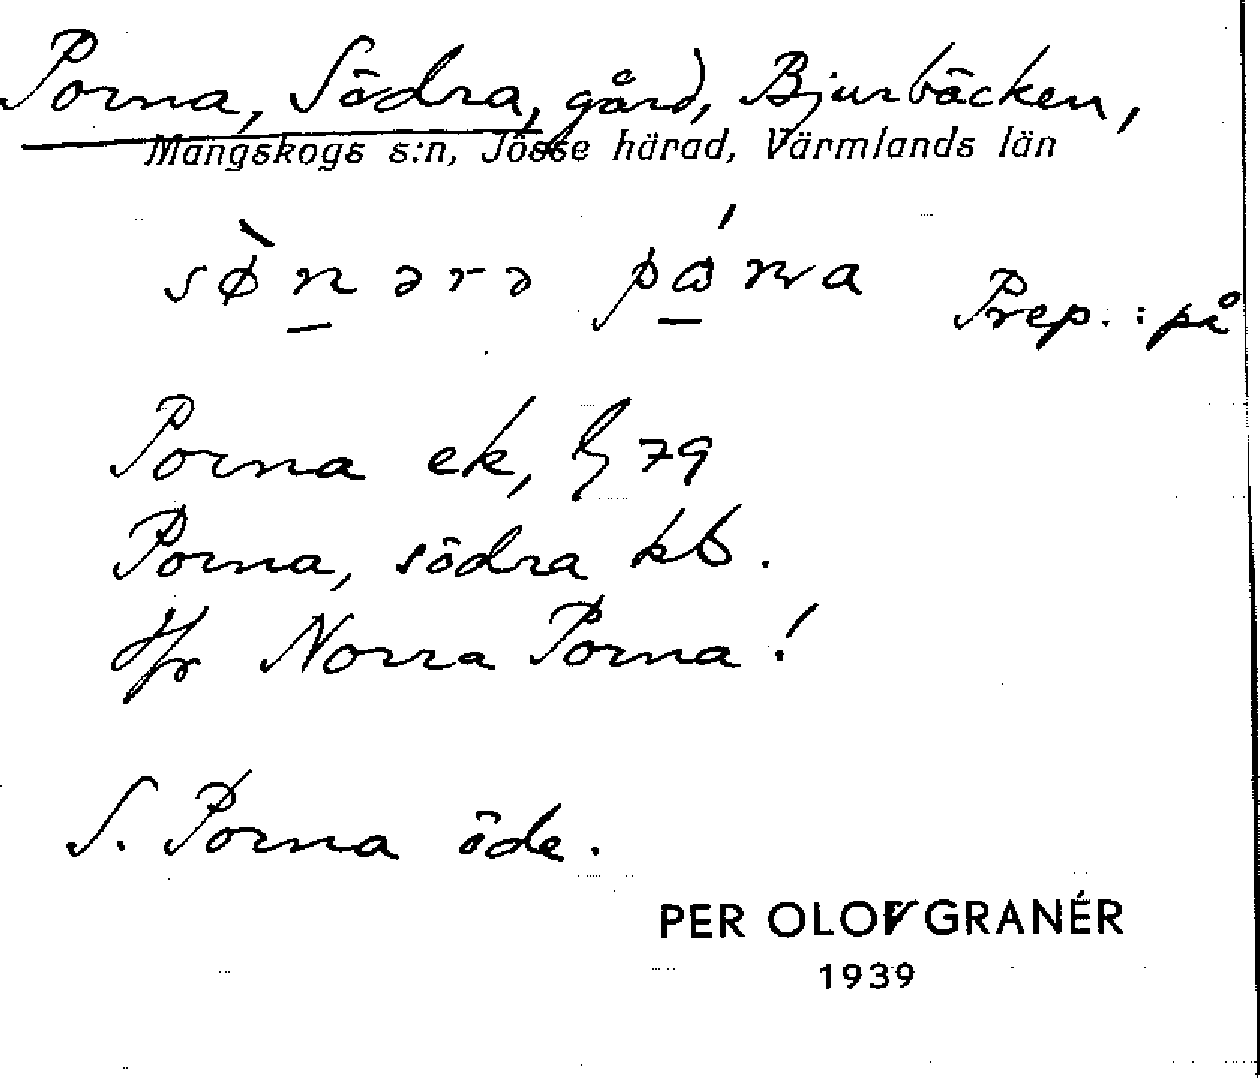 Porna, Södra, gård, Bjurbäcken,
Mangskogs s:n, Jösse härad, Värmlands län
sø̀nərə pánna Prep.: på
Porna ek, 79
Porna, södra kb.
Jfr Norra Porna!
S. Porna öde.
PER OLOF GRANÉR
1939